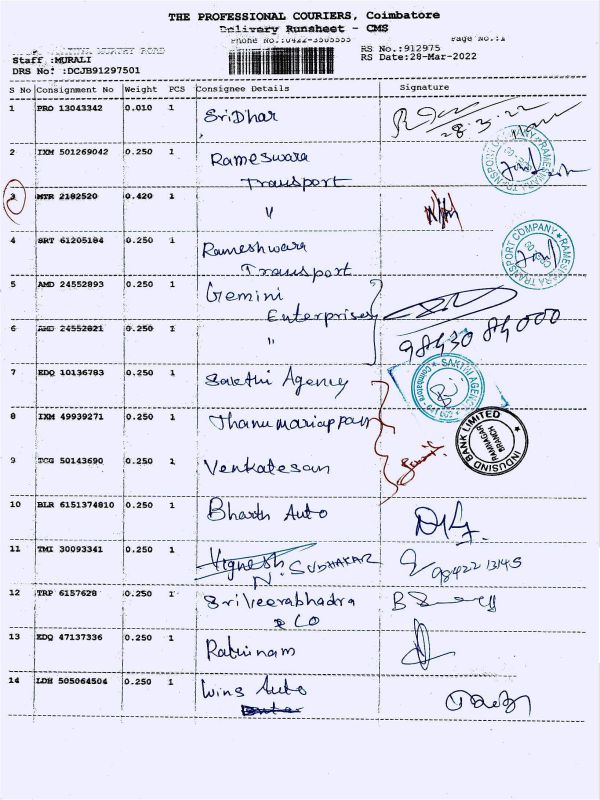 THE PROFESSIONAL COURIERS, Coimbatore
Delivery Runsheet - CMS
Phone No.:0422-3505555 Page No.:1
MURTHY ROAD
Staff :MURALI RS No.:912975
DRS No: :DCJB91297501 RS Date:28-Mar-2022
S No Consignment No Weight PCS Consignee Details Signature
1 PRO 13043342 0.010 1 SriDhar
28.3.22
2 IXM 501269042 0.250 1 Rameswara
Transport
3 MTR 2182520 0.420 1 "
4 SRT 61205184 0.250 1 Rameshwara
Transport
5 AMD 24552893 0.250 1 Gemini
Enterprises
6 AMD 24552821 0.250 1 "
98430 84000
7 EDQ 10136783 0.250 1 Sakthi Agency
8 IXM 49939271 0.250 1 Thanumariappan
INDUSIND BANK LIMITED
RAMNAGAR
BRANCH
9 TCG 50143690 0.250 1 Venkatesan
10 BLR 6151374810 0.250 1 Bharth Auto
11 TMI 30093341 0.250 1 Vignesh
N. SUDHAKAR 98422 13145
12 TRP 6157628 0.250 1 SriVeerabhadra
& CO
13 EDQ 47137336 0.250 1 Rathinam
14 LDH 505064504 0.250 1 Wins Auto